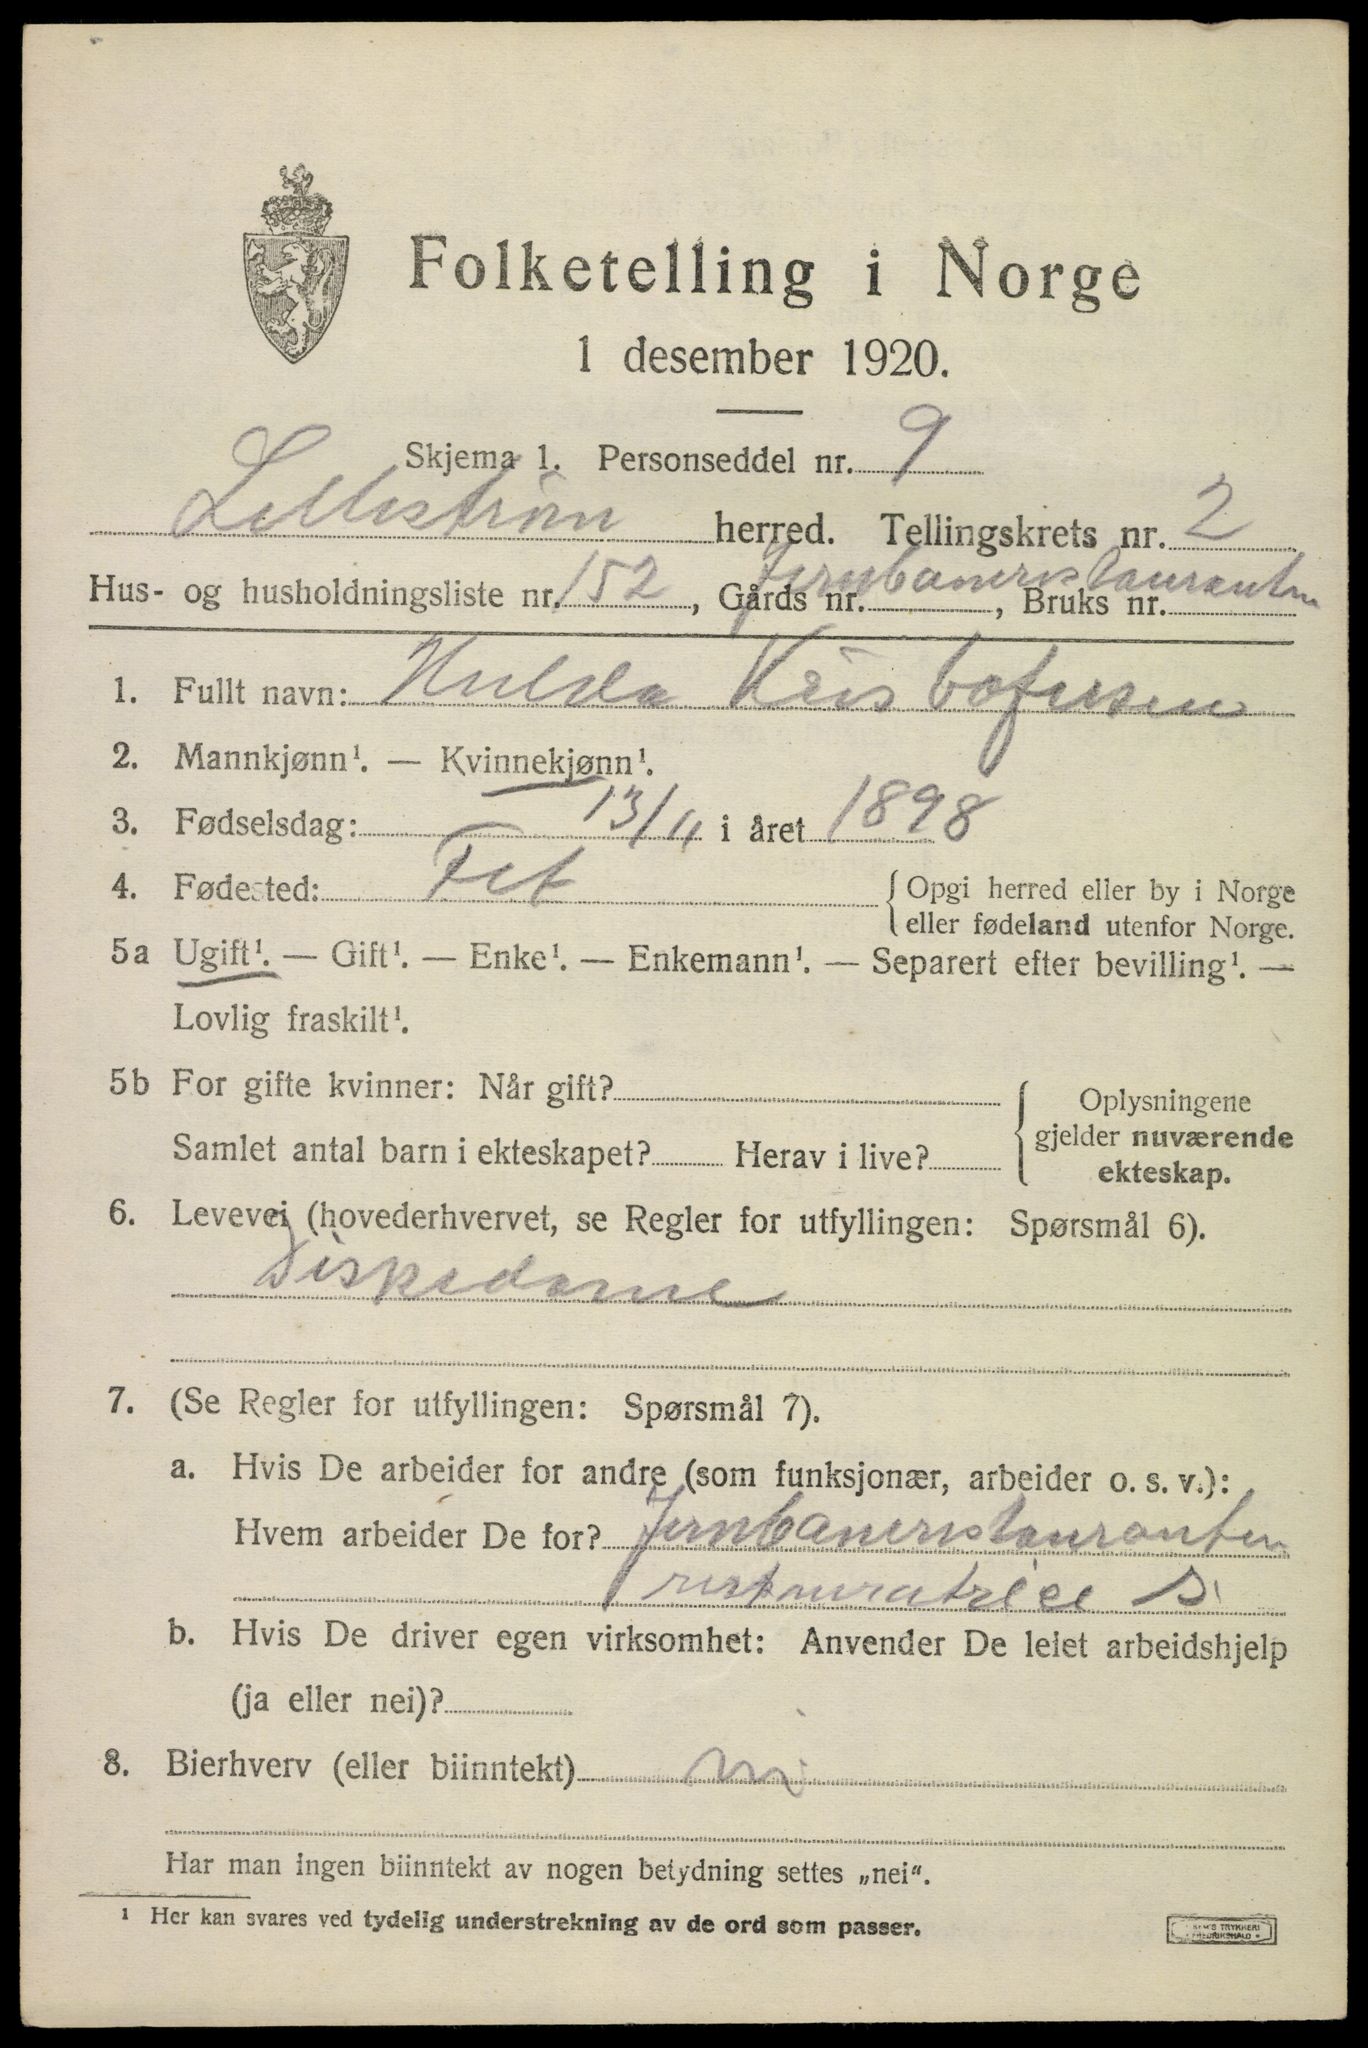 Folketelling i Norge
1 desember 1920.
Skjema 1. Personseddel nr. 9
Lillestrøm herred. Tellingskrets nr. 2
Hus- og husholdningsliste nr. 152, Gårds nr. , Bruks nr.
Jernbanerestauranten
1. Fullt navn: Hulda Kristofersen
2. Mannkjønn¹. — Kvinnekjønn¹.
3. Fødselsdag: 13/11 i året 1898
4. Fødested: Fet {Opgi herred eller by i Norge
eller fødeland utenfor Norge.
5a Ugift¹. — Gift¹. — Enke¹. — Enkemann¹. — Separert efter bevilling¹. —
Lovlig fraskilt¹.
5b For gifte kvinner: Når gift?
Samlet antal barn i ekteskapet? Herav i live?
Oplysningene
gjelder nuværende
ekteskap.
6. Levevei (hovederhvervet, se Regler for utfyllingen: Spørsmål 6).
Diskedame
7. (Se Regler for utfyllingen: Spørsmål 7).
a. Hvis De arbeider for andre (som funksjonær, arbeider o. s. v.):
Hvem arbeider De for? Jernbanerestauranten
b. Hvis De driver egen virksomhet: Anvender De leiet arbeidshjelp
(ja eller nei)?
8. Bierhverv (eller biinntekt) nei
Har man ingen biinntekt av nogen betydning settes „nei“.
¹ Her kan svares ved tydelig understrekning av de ord som passer.
TRYKKERI
FREDRIKSHALD